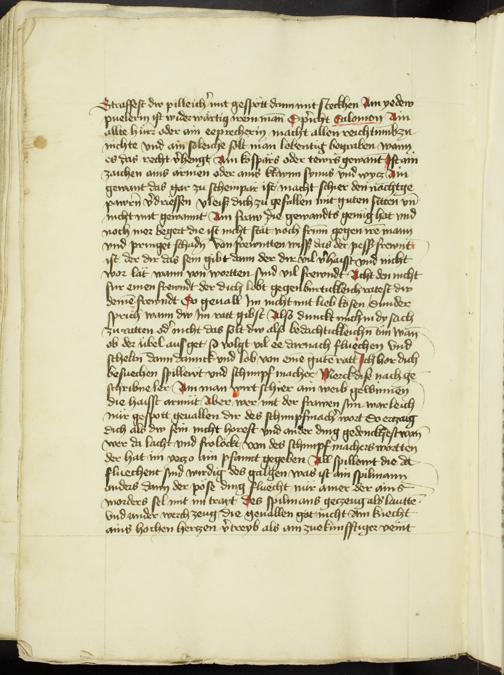 Straffest dw pilleich mit gespött dann mit steckhen Ain yeder
puelerin ist widerwärtig wenn man Spricht Salomon Ain
alte hůr oder ain eeprecherin macht allen reichtumb zu
nichte und ain soleche solt man lebentig begraben wann
es das recht verhengt Ain kospärs oder tewrs gewant ist ain
zaichen ains armen oder ains klainen synns und wycz Ain
gewant das gar zu scheinpar ist macht schier den nächtge
pawrn verdriessen vleiss dich zu gefallen mit guten sitten und
nicht mit gewannt Ain fraw die gewandts genůg hat und
noch mer begert die ist nicht stät noch frum gegen irem mann
und pringet schadn von frewnten wiss das der pesst frewnt
ist der dir das sein gibt dann der dir vil verhaisst und nicht
vor lät wann von worten sind vil frewndt Acht den nicht
fur einen frewndt der dich lobt gegenburtickleich ratest dw
deinem frewndt So geuall im nicht mit lieb kosen Sunder
sprich wann dw im ratt gibst Also dunckt mich in dy sach
zu ratten und nicht das solt dw also bedachtickleichn tun wan
ob der übel aussget so volgt vil ee darnach fluechen und
schelten dann danck und lob von eine gute ratt Ich hor dich
besuechen spillewt und schimpf macher Merck dise nachge
schribne ler Ain man wirt schier ain weib gewinnen
die haisst armüt Aber wer mit der frawen sun warleich
nür gespött geuallen dir des schimpfmachers wort So erzaig
dich als dw sein nicht horest und ander ding gedenckhest wan
wer da lacht und frolockt von des schimpfmachers worten
der hat im yeczo ain pfannt gegeben All spillewt die da
fluechent sind wirdig des galgen was ist ain spilmann
anders dann der pöse ding fluecht nur ainer der ains
morders sel mit im trayt des spilmans geczeug als lautte
und ander werchzeug die geuallen got nicht Ain knecht
ains hochen herzen vertreyb als ain zuekunfftigen veint